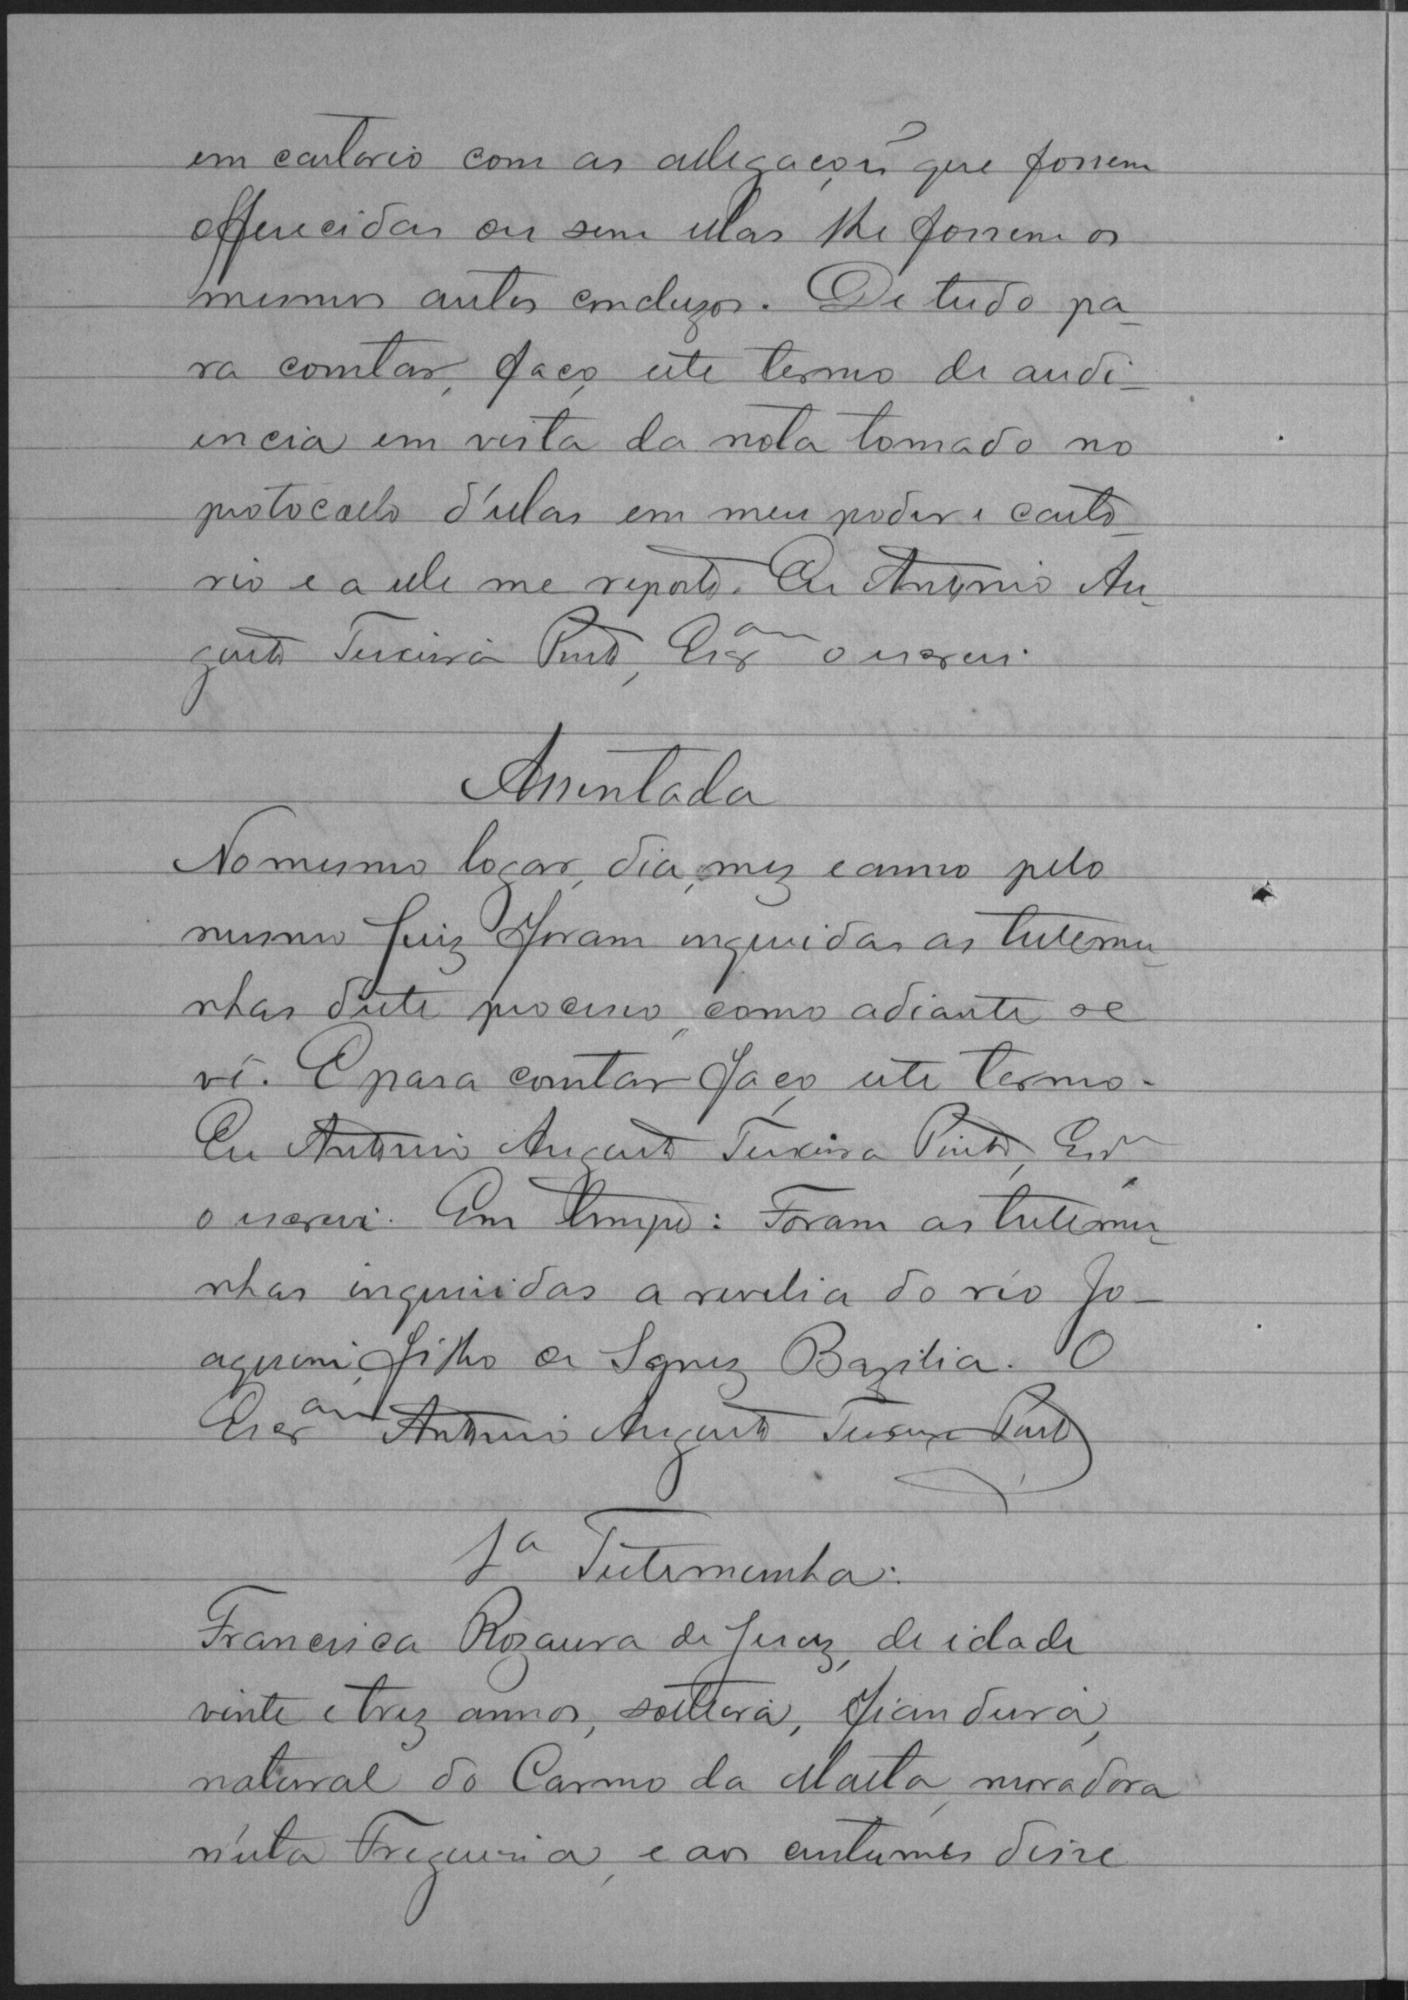 em cartorio com as allegaçoẽs que fossem
offerecidas ou sem ellas lhe fossem os
mesmos autos concluzos. De tudo pa-
ra constar, faço este termo de audi-
encia em vista da nota tomado no
protocollo d'ellas em meu poder e carto-
rio e a elle me reporto. Eu Antonio Au-
gusto Teixeira Pinto, Escr.am o escrevi.
Assentada
No mesmo logar, dia, mez e anno pelo
mesmo Juiz foram inqueridas as testemu-
nhas d'este processo, como adiante se
vê. E para constar faço este termo.
Eu Antonio Augusto Teixeira Pinto, Escr.m
o escrevi. Em tempo: Foram as testemu-
nhas inqueridas a revelia do réo Jo-
aquim, filho de Ignez Bazilia. O
Escr.am Antonio Augusto Teixeira Pinto
1a Testemunha:
Francisca Rozaura de Jesuz, de idade
vinte e trez annos, solteira, fiandeira,
natural do Carmo da Matta, moradora
n'esta Freguesia, e aos custumes disse